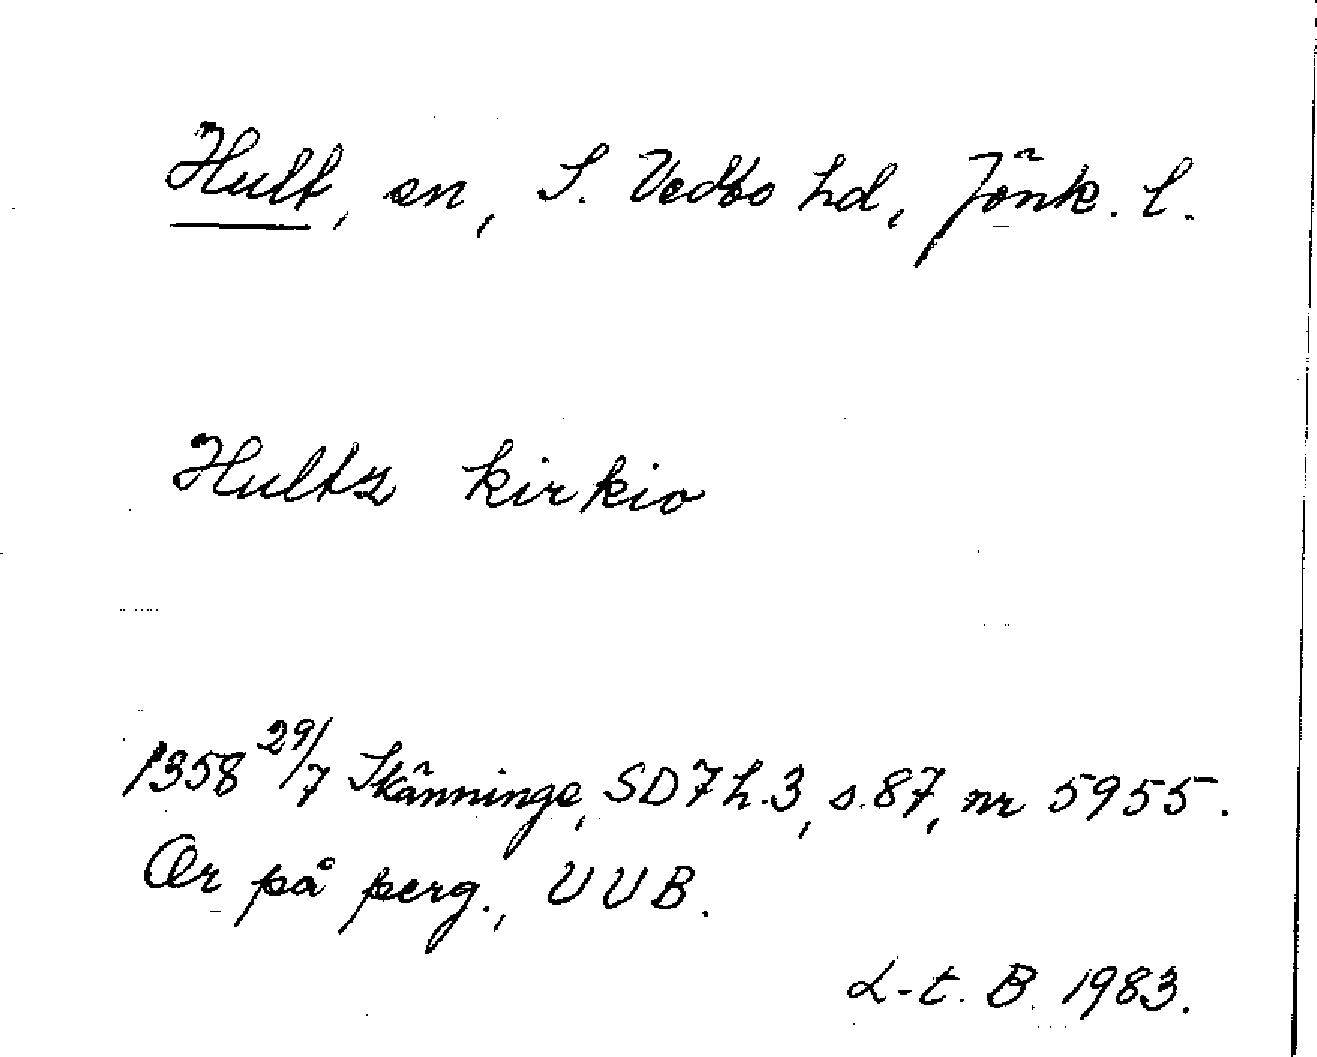 Hult, sn, S. Vedbo hd, Jönk. l.
Hultz kirkio
1358 29/7 Skänninge, SD 7 h. 3, s. 87, nr 5955.
Or på perg., UUB.
L-t. B. 1983.